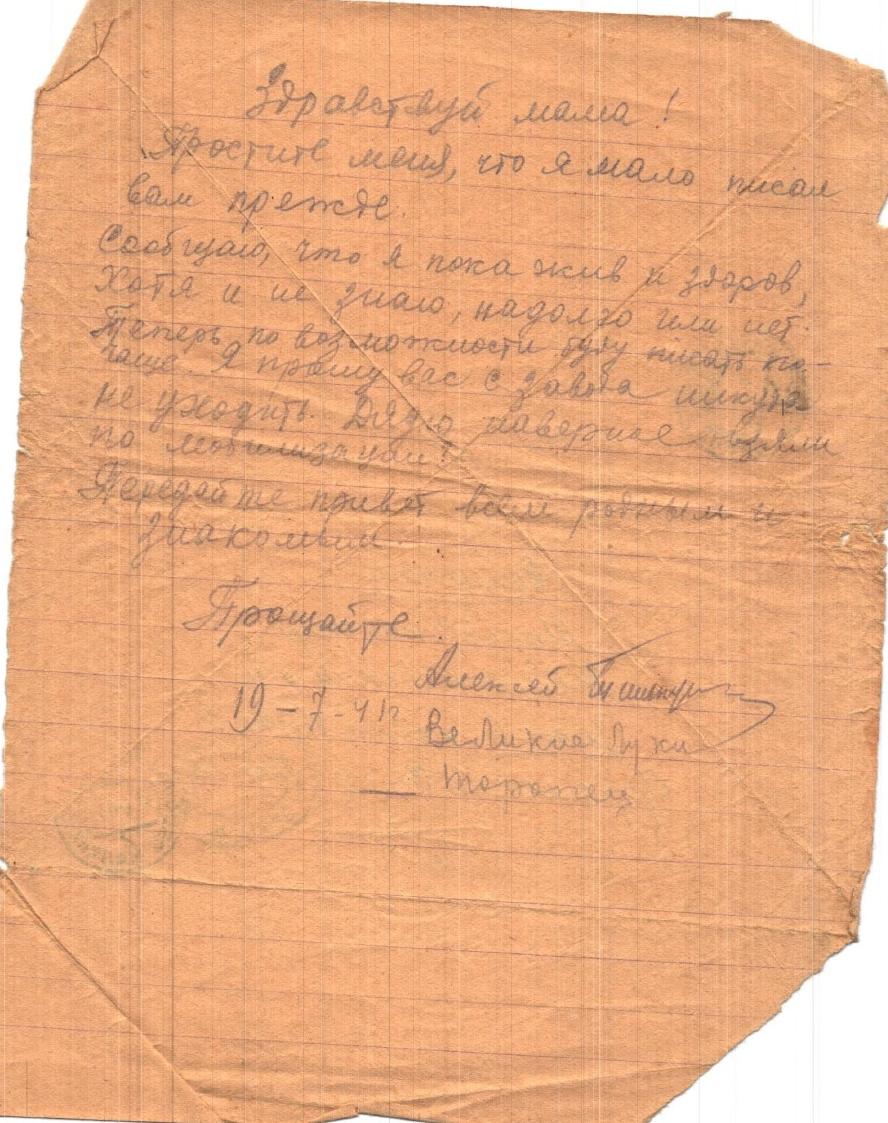 Здравствуй мама!
Простите меня, что я мало писал
вам прежде.
Сообщаю, что я пока жив и здоров,
Хотя и не знаю, надолго или нет.
Теперь по возможности буду писать по-
чаще. Я прошу вас с завода никуда
не уходить. Дядю наверное взяли
по мобилизации.
Передайте привет всем родным и
знакомым.
Прощайте.
Алексей
19-7-41г
Великие Луки
Торопец